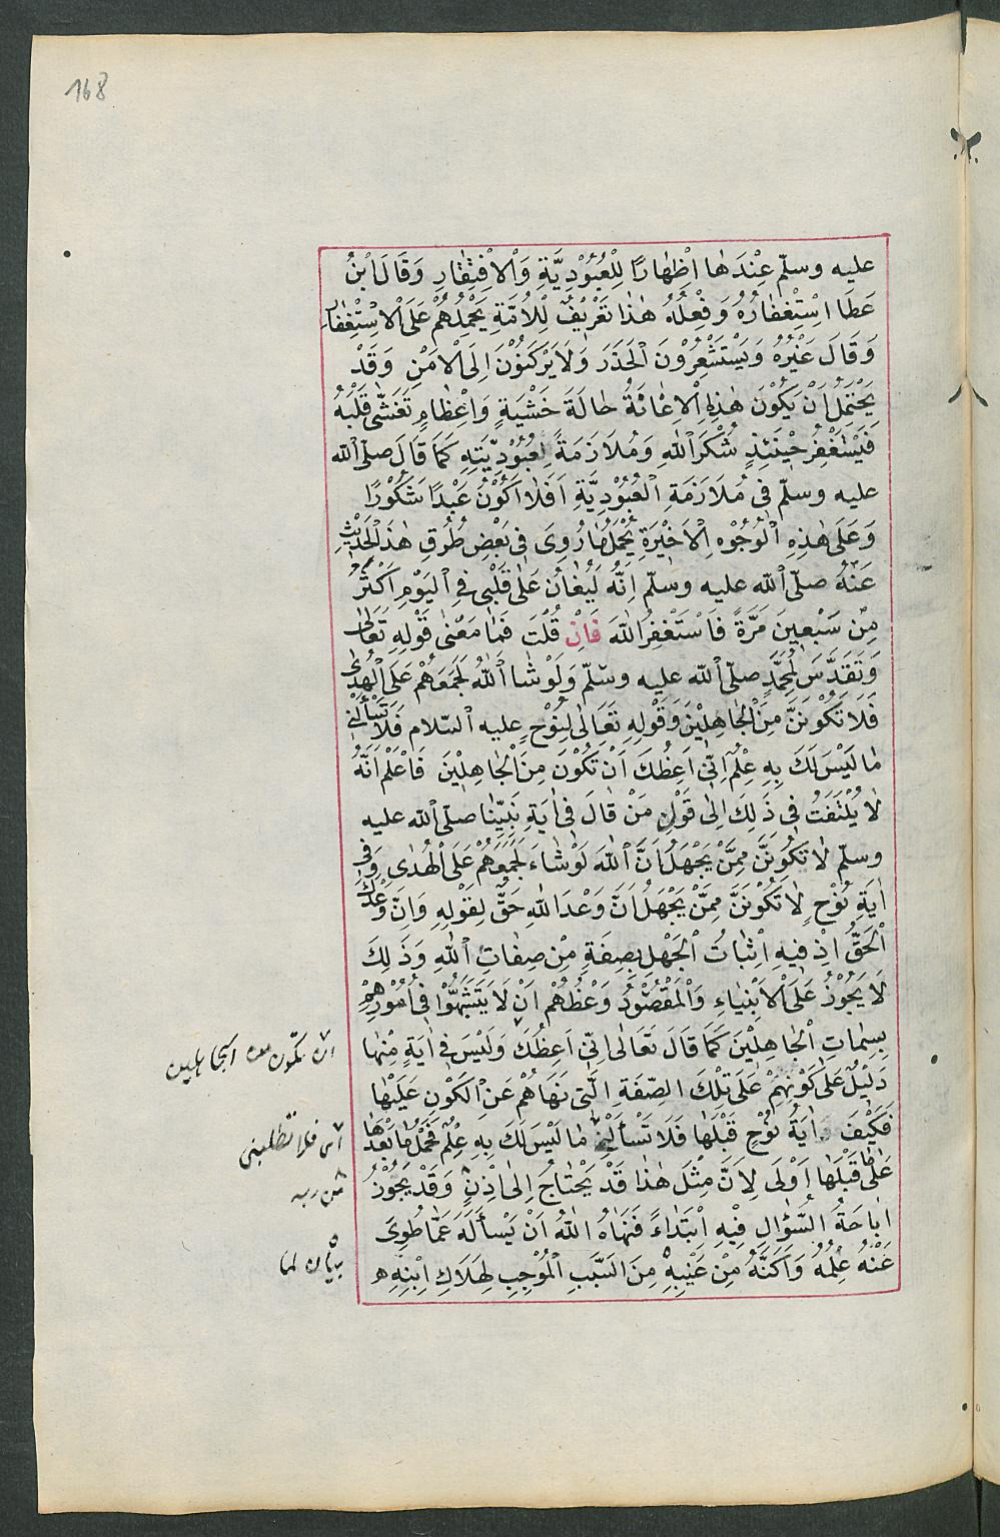 168
عليه وسلّم عِنْدَهٰا اِظْهٰارًا لِلْعُبُوْدِيَّةِ وَالْاِفْتِقٰارِ وَقَالَ ابْنُ
عَطَا اسْتِغْفٰارُهُ وَفِعْلُهُ هٰذٰا تَعْرِيْفٌ لِلْاُمَّةِ يَحْمِلُهُمْ عَلَى الْاِسْتِغْفٰارِ
وَقَالَ غَيْرُهُ وَيَسْتَشْعِرُوْنَ الْحَذَرَ وَلَا يَرْكَنُوْنَ اِلَى الْاَمْنِ وَقَدْ
يَحْتَمِلُ اَنْ يَكُوْنَ هٰذِهِ الْاِغٰانَةُ حٰالَةَ خَشْيَةٍ وَاِعْظٰامٍ تَغَشّٰى قَلْبَهُ
فَيَسْتَغْفِرُ حِيْنَئِذٍ شُكْرًا لِلّٰهِ وَمُلَازَمَةً لِعُبُوْدِيَّتِهِ كَمَا قَالَ صلّى الله
عليه وسلّم فى مُلَازَمَةِ الْعُبُوْدِيَّةِ اَفَلَا اَكُوْنُ عَبْدًا شَكُوْرًا
وَعَلَى هٰذِهِ الْوُجُوْهِ الْاَخِيْرَةِ يُحْمَلُ مٰا رُوِىَ فِى بَعْضِ طُرُقِ هٰذَا الْحَدِيْثِ
عَنْهُ صلّى الله عليه وسلّم اِنَّهُ لَيُغٰانُ عَلٰى قَلْبِى فِى الْيَوْمِ اَكْثَرُ
مِنْ سَبْعِينَ مَرَّةً فَاَسْتَغْفِرُ اللّٰهَ فَاِنْ قُلْتَ فَمٰا مَعْنٰى قَوْلِهِ تَعَالٰى
وَتَقَدَّسَ لِمُحَمَّدٍ صلّى الله عليه وسلّم وَلَوْ شٰا اللّٰهُ لَجَمَعَهُمْ عَلَى الْهُدٰى
فَلَا تَكُوْنَنَّ مِنَ الْجَاهِلِيْنَ وَقَوْلِهِ تَعَالٰى لِنُوْحٍ عليه السّلام فَلَا تَسْأَلْنِى
مٰا لَيْسَ لَكَ بِهِ عِلْمٌ اِنِّى اَعِظُكَ اَنْ تَكُوْنَ مِنَ الْجٰاهِلِيْنَ فَاعْلَمْ اَنَّهُ
لَا يُلْتَفَتُ فِى ذَلِكَ اِلٰى قَوْلِ مَنْ قَالَ فِى اٰيَةِ نَبِيِّنٰا صلّى الله عليه
وسلّم لَا تَكُوْنَنَّ مِمَّنْ يَجْهَلُ اَنَّ اللّٰهَ لَوْ شٰاءَ لَجَمَعَهُمْ عَلَى الْهُدٰى وَفِى
اٰيَةِ نُوْحٍ لَا تَكُوْنَنَّ مِمَّنْ يَجْهَلُ اَنَّ وَعْدَ اللّٰهِ حَقٌّ لِقَوْلِهِ وَاِنَّ وَعْدَكَ
الْحَقُّ اِذْ فِيهِ اِثْبَاتُ الْجَهْلِ بِصِفَةٍ مِنْ صِفٰاتِ اللّٰهِ وَذَلِكَ
لَا يَجُوْزُ عَلَى الْاَنْبِيَاءِ وَالْمَقْصُوْدُ وَعْظُهُمْ اَنْ لَا يَتَشَبَّهُوْا فِى اُمُوْرِهِمْ
بِسِمٰاتِ الْجٰاهِلِيْنَ كَمَا قَالَ تَعَالٰى اِنِّى اَعِظُكَ وَلَيْسَ فِى اٰيَةٍ مِنْهٰا
ان تكون من الجاهلين
دَلِيْلٌ عَلٰى كَوْنِهِمْ عَلَى تِلْكَ الصِّفَةِ الَّتِى نَهَاهُمْ عَنِ الْكَوْنِ عَلَيْهٰا
فَكَيْفَ وَاٰيَةُ نُوْحٍ قَبْلَهَا فَلَا تَسْأَلْنِى مٰا لَيْسَ لَكَ بِهِ عِلْمٌ فَحَمْلُ مٰا بَعْدَهٰا
اى فلا تطلبنى
عَلٰى مٰا قَبْلَهٰا اَوْلَى لِاَنَّ مِثْلَ هٰذٰا قَدْ يَحْتٰاجُ اِلٰى اِذْنٍ وَقَدْ يَجُوْزُ
من ربه
اِبٰاحَةُ السُّؤَالِ فِيْهِ اِبْتِدٰاءً فَنَهٰاهُ اللّٰهُ اَنْ يَسْأَلَهُ عَمّٰا طُوِىَ
عَنْهُ عِلْمُهُ وَاَكَنَّهُ مِنْ غَيْبِهِ مِنَ السَّبَبِ الْمُوْجِبِ لِهَلَاكِ اِبْنِهِ
بيان لما